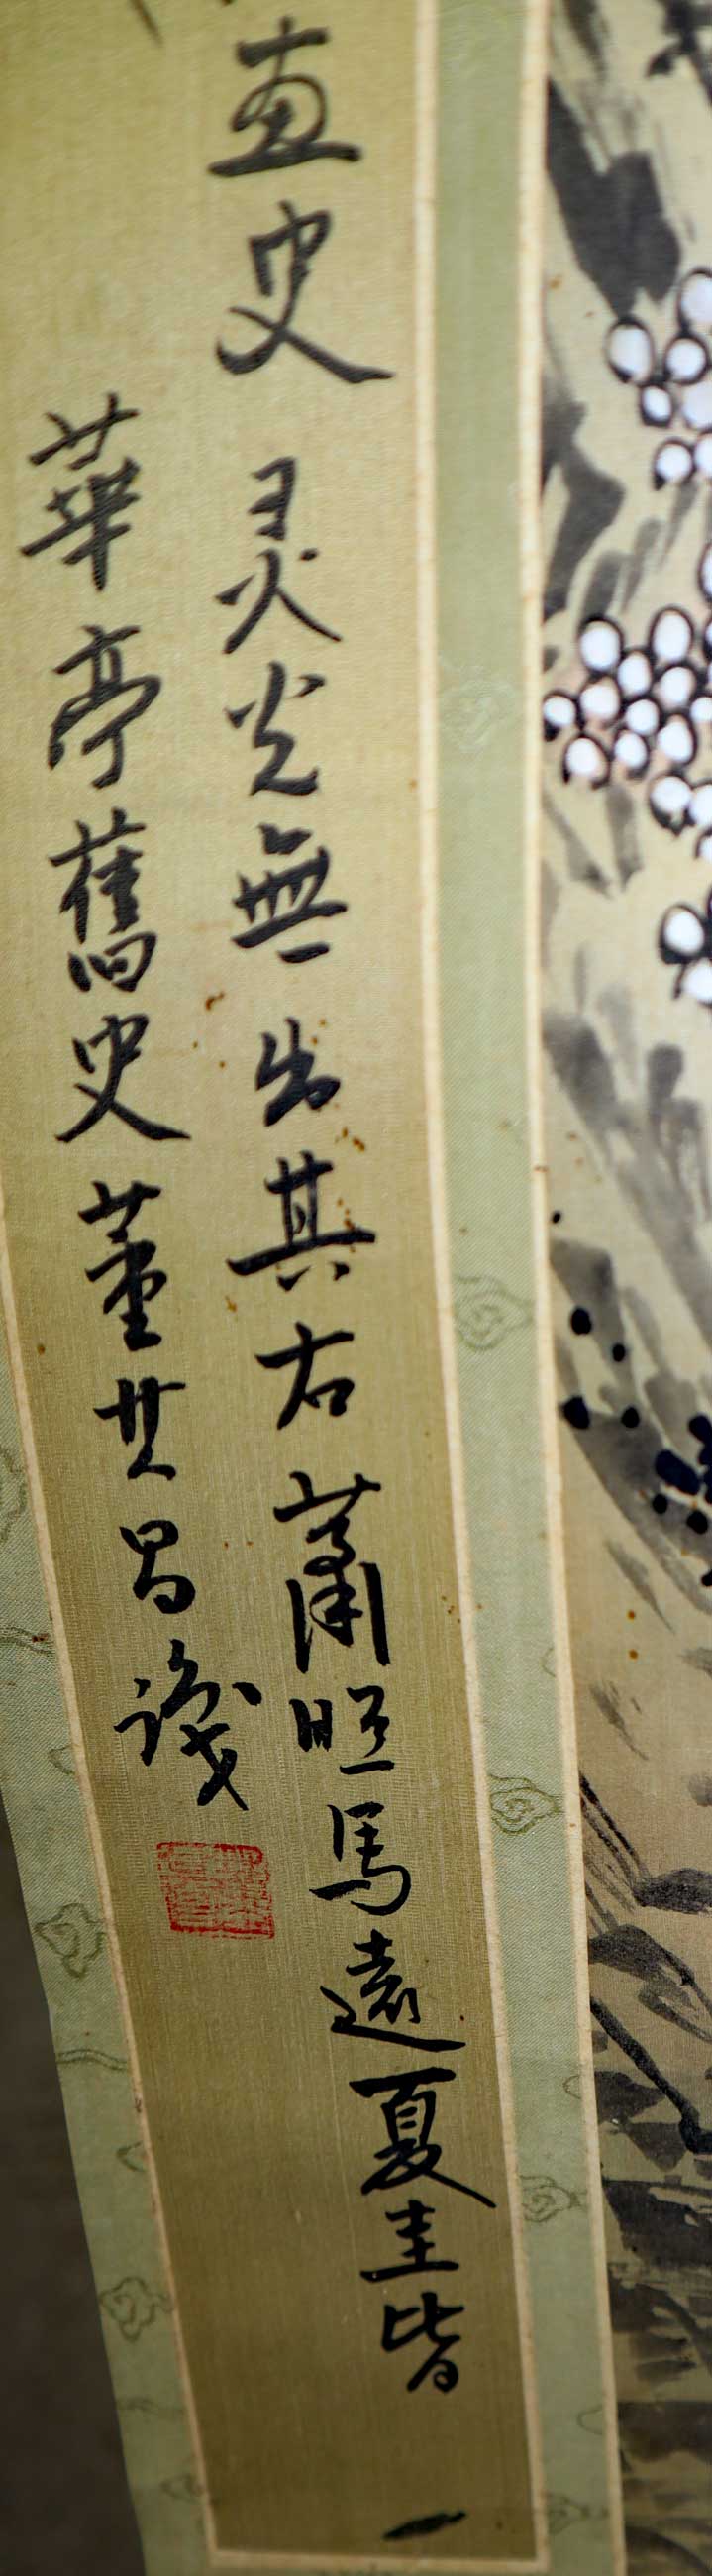 畫史灵光無出其右蕭照馬遠夏圭皆一
華亭舊史董其昌識